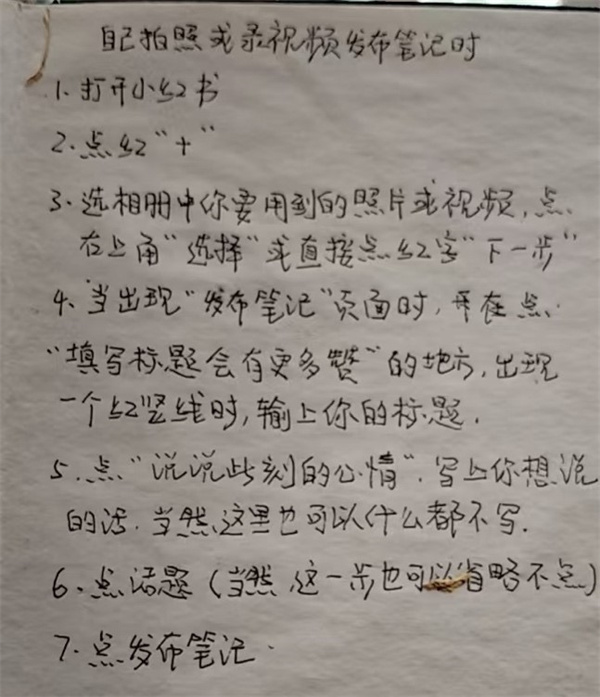 自己拍照或录视频发布笔记时
1、打开小红书
2、点红"+"
3、选相册中你要用到的照片或视频,点
右上角"选择"或直接点红字"下一步"
4、当出现"发布笔记"页面时,并在点
"填写标题会有更多赞"的地方,出现
一个红竖线时,输上你的标题.
5、点"说说此刻的心情",写上你想说
的话.当然这里也可以什么都不写.
6、点话题(当然这一步也可以省略不点)
7、点发布笔记.